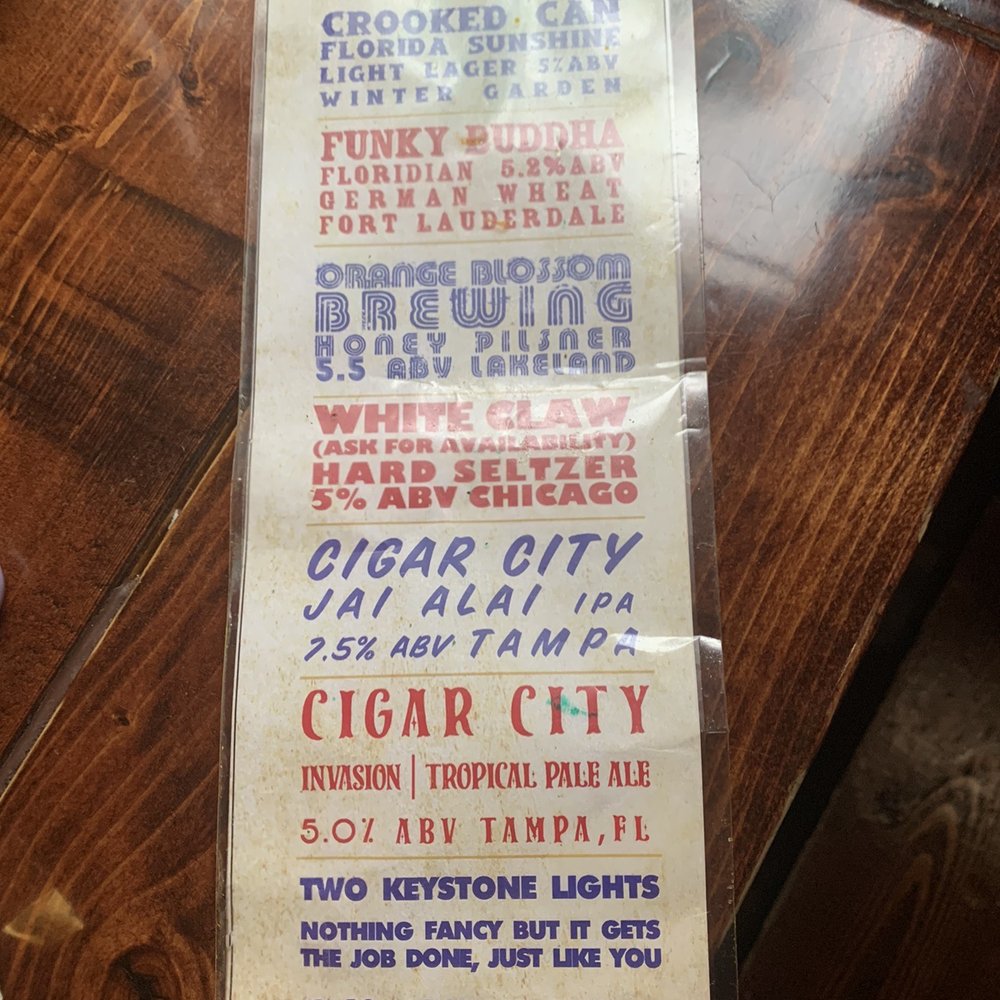 CROOKED CAN
FLORIDA SUNSHINE
LIGHT LAGER 5%ABV
WINTER GARDEN
FUNKY BUDDHA
FLORIDIAN 5.2%ABV
GERMAN WHEAT
FORT LAUDERDALE
ORANGE BLOSSOM
BREWING
HONEY PILSNER
5.5 ABV LAKELAND
WHITE CLAW
(ASK FOR AVAILABILITY)
HARD SELTZER
5% ABV CHICAGO
CIGAR CITY
JAI ALAI IPA
7.5% ABV TAMPA
CIGAR CITY
INVASION | TROPICAL PALE ALE
5.0% ABV TAMPA, FL
TWO KEYSTONE LIGHTS
NOTHING FANCY BUT IT GETS
THE JOB DONE, JUST LIKE YOU